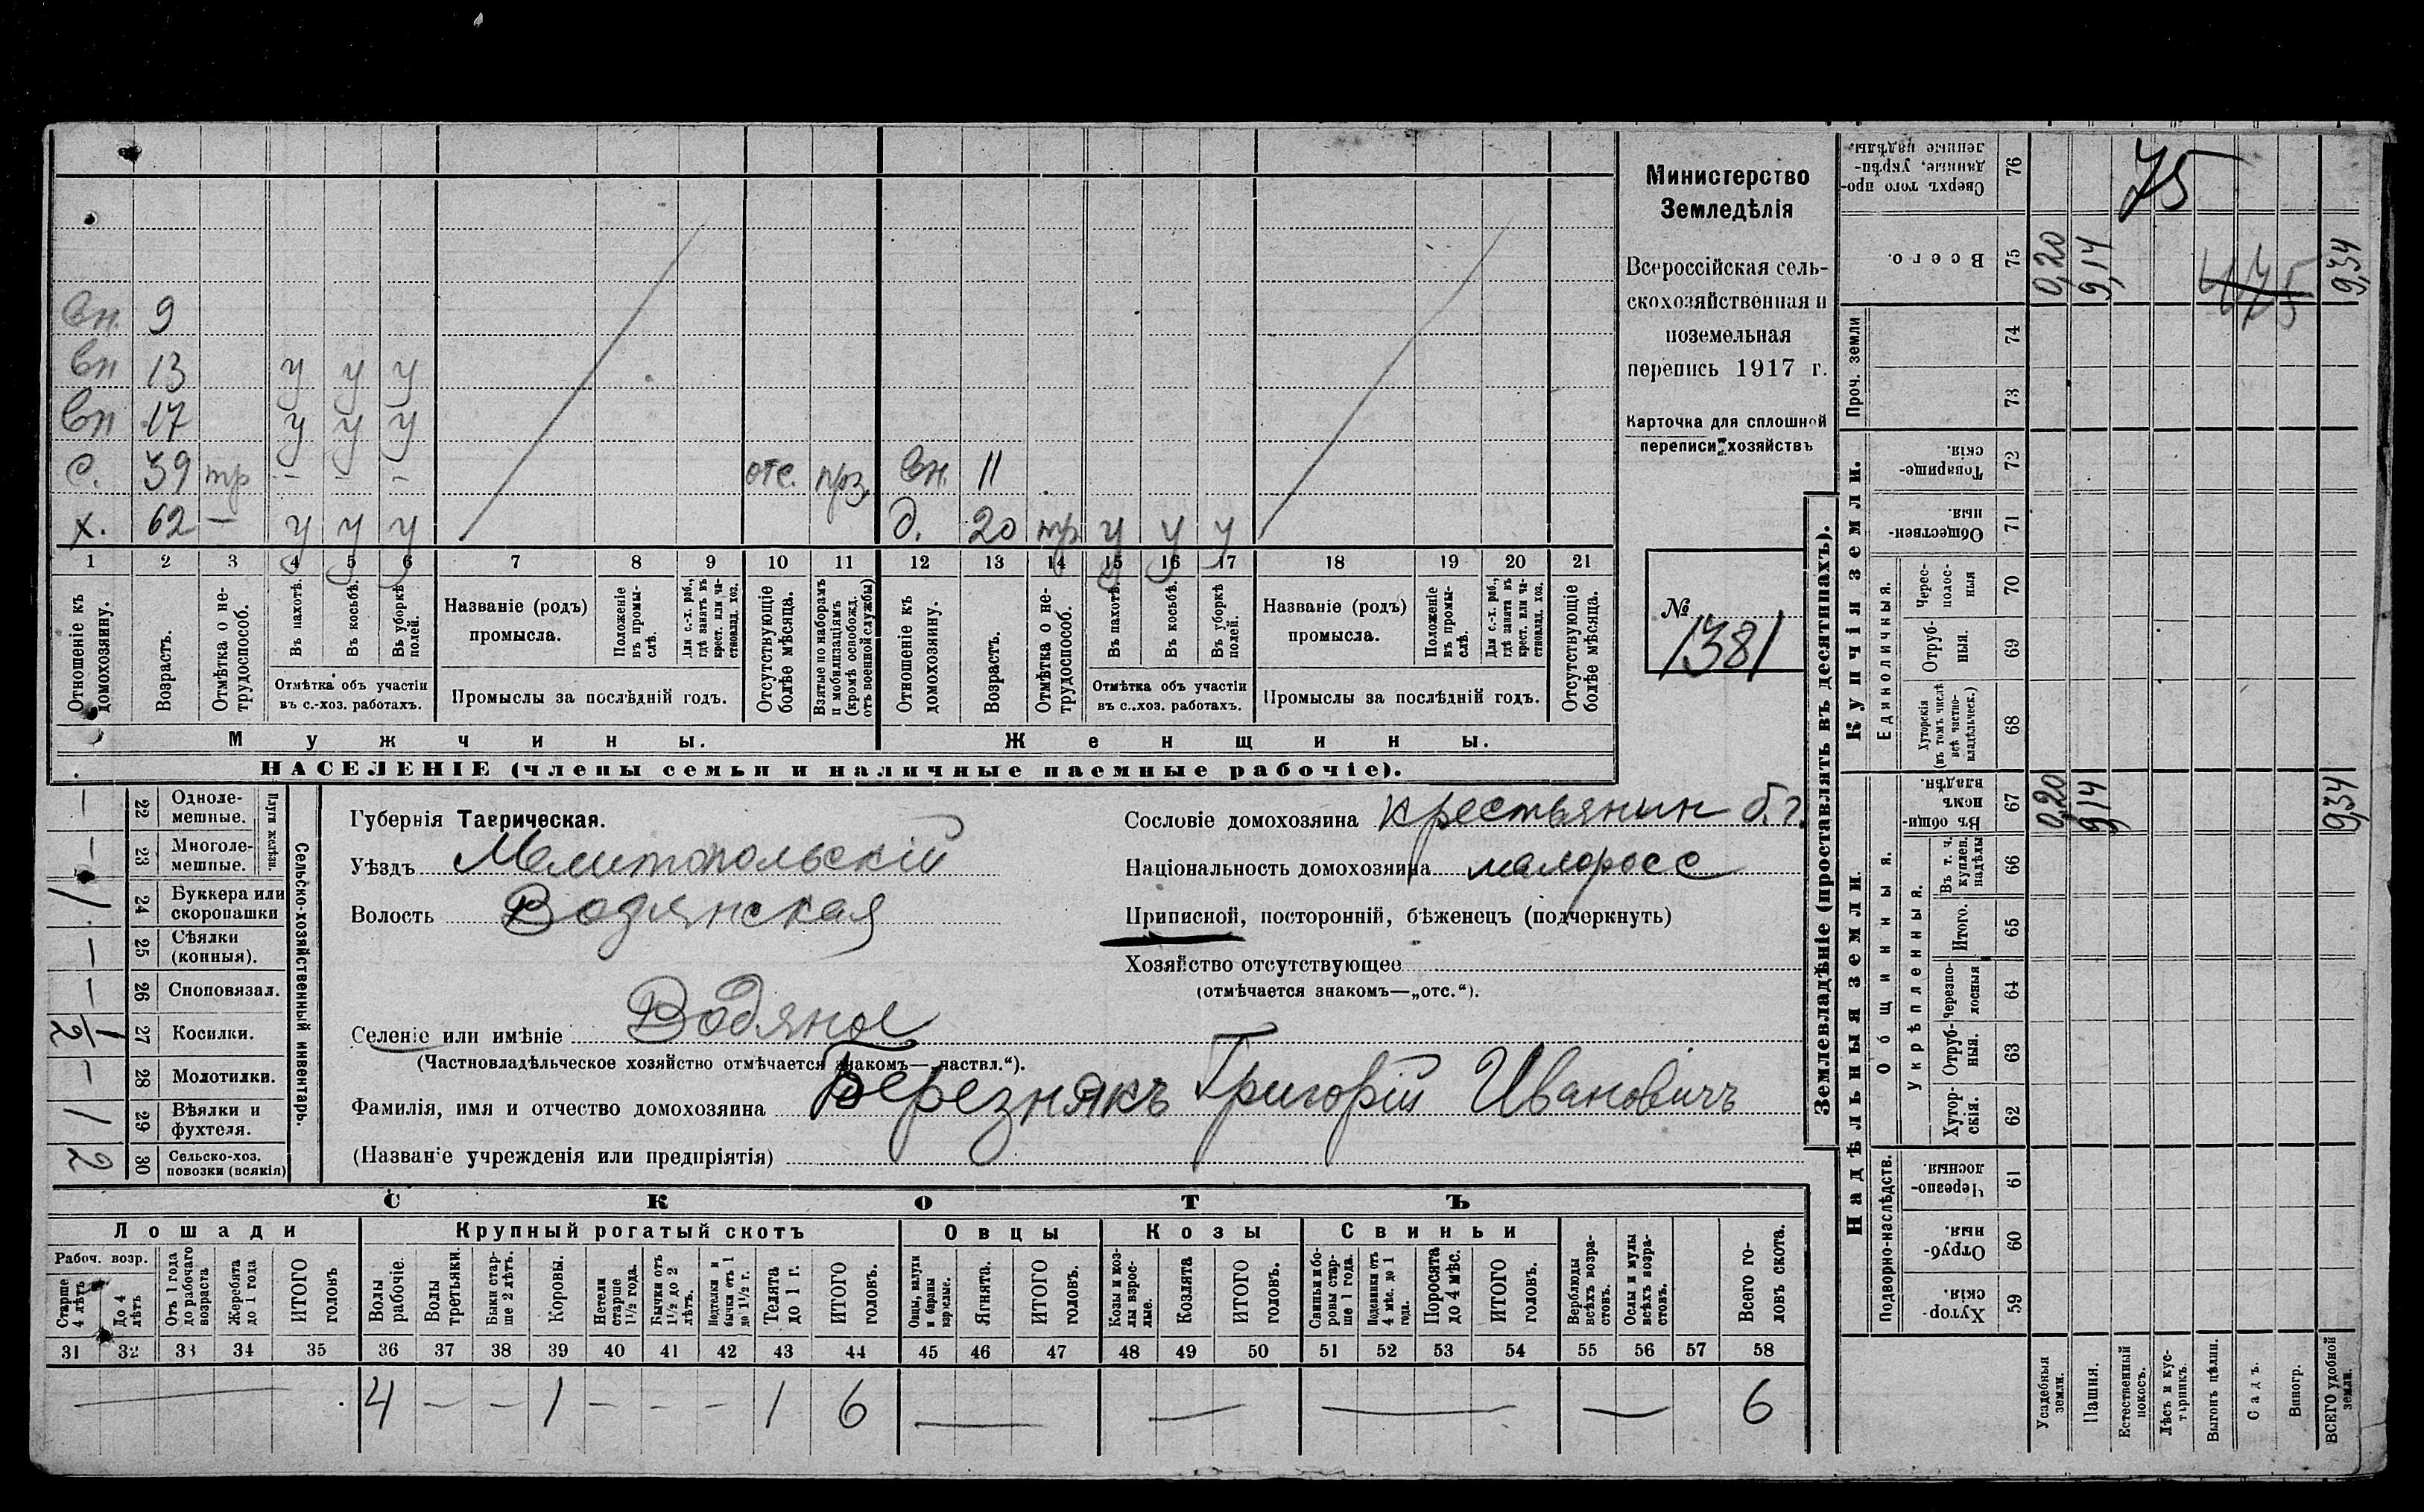 Министерство
Земледѣлія
Всероссійская сель-
скохозяйственная и
поземельная
перепись 1917 г.
Карточка для сплошной
переписи хозяйствъ
№
1381
вн. 9
вн 13 у у у
вн 17 у у у
с. 39 тр – – – отс. прз. вн. 11
х. 62 – у у у д. 20 тр у у у
1 2 3 4 5 6 7 8 9 10 11 12 13 14 15 16 17 18 19 20 21
Отношеніе къ домохозяину.
Возрастъ.
Отмѣтка о не-трудоспособ.
Въ пахотѣ.
Въ косьбѣ.
Въ уборкѣ полей.
Отмѣтка объ участіи
въ с.-хоз. работахъ.
Названіе (родъ)
промысла.
Положеніе въ промы-слѣ.
Для с.-х. раб., гдѣ занятъ въ крест. или ча-стновлад. хоз.
Промыслы за послѣдній годъ.
Отсутствующіе болѣе мѣсяца.
Взятые по наборамъ и мобилизаціямъ (кромѣ освобожд. отъ военной службы)
Отношеніе къ домохозяину.
Возрастъ.
Отмѣтка о не-трудоспособ.
Въ пахотѣ.
Въ косьбѣ.
Въ уборкѣ полей.
Отмѣтка объ участіи
въ с.-хоз. работахъ.
Названіе (родъ)
промысла.
Положеніе въ промы-слѣ.
Для с.-х. раб., гдѣ занята въ крест. или ча-стновлад. хоз.
Промыслы за послѣдній годъ.
Отсутствующіе болѣе мѣсяца.
Мужчины. Женщины.
НАСЕЛЕНІЕ (члены семьи и наличные наемные рабочіе).
Сельско-хозяйственный инвентарь.
Плуги желѣзн.
– 22 Одноле-мешные.
– 23 Многоле-мешные.
1 24 Буккера или скоропашки
– 25 Сѣялки (конныя).
– 26 Сноповязал.
1/2 27 Косилки.
– 28 Молотилки.
1 29 Вѣялки и фухтеля.
2 30 Сельско-хоз. повозки (всякія)
Губернія Таврическая.
Уѣздъ Мелитопольскій
Волость Водянская
Селеніе или имѣніе Водяное
(Частновладѣльческое хозяйство отмѣчается знакомъ—„частвл.“).
Фамилія, имя и отчество домохозяина Березнякъ Григорій Ивановичъ
(Названіе учрежденія или предпріятія)
Сословіе домохозяина крестьянин б.г.
Національность домохозяина малоросс
Приписной, посторонній, бѣженецъ (подчеркнуть)
Хозяйство отсутствующее
(отмѣчается знакомъ—„отс.“).
СКОТЪ
Лошади Крупный рогатый скотъ Овцы Козы Свиньи
Рабоч. возр.
Старше 4 лѣтъ
До 4 лѣтъ
Отъ 1 года до рабочаго возраста
Жеребята до 1 года
ИТОГО головъ
Волы рабочіе.
Волы третьяки.
Быки стар-ше 2 лѣтъ.
Коровы.
Нетели старше 1½ года.
Бычки отъ 1½ до 2 лѣтъ.
Подтелки и бычки отъ 1 до 1½ г.
Телята до 1 г.
ИТОГО головъ.
Овцы, валухи и бараны взрослые.
Ягнята.
ИТОГО головъ.
Козы и коз-лы взрос-лые.
Козлята
ИТОГО головъ.
Свиньи и бо-ровы стар-ше 1 года.
Подсвинки отъ 4 мѣс. до 1 года.
Поросята до 4 мѣс.
ИТОГО головъ.
Верблюды всѣхъ возра-стовъ.
Ослы и мулы всѣхъ возра-стовъ.
Всего го-ловъ скота.
31 32 33 34 35 36 37 38 39 40 41 42 43 44 45 46 47 48 49 50 51 52 53 54 55 56 57 58
— 4 – – 1 – – – 1 6 — — — — 6
Землевладѣніе (проставлять въ десятинахъ).
Надѣльныя земли.
Купчія земли.
Проч. земли
Подворно-наслѣдств.
Общинныя.
Укрѣпленныя.
Единоличныя.
Сверхъ того про-данные, укрѣп-ленные надѣлы. 76
Всего. 75
74
73
Товарище-скія. 72
Обществен-ныя 71
Черес-полос-ныя 70
Отруб-ныя. 69
Хуторскія (въ томъ числѣ всѣ частно-владѣльческ.) 68
Въ общи-номъ владѣн. 67
Въ т. ч. куплен. надѣлы 66
Итого. 65
Черезпо-лосныя 64
Отруб-ныя. 63
Хутор-скія. 62
Черезпо-лосныя. 61
Отруб-ныя. 60
Хутор-скія. 59
Усадебныя земли.
Пашня.
Естественный покосъ.
Лѣсъ и кус-тарникъ.
Выгонъ цѣлин.
Садъ.
Виногр.
ВСЕГО удобной земли.
75
0,20 9,14 475 9,34
0,20 9,14 9,34